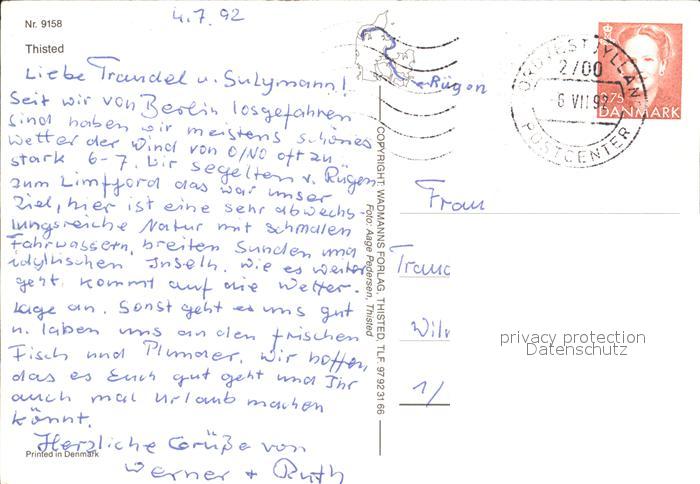 4.7.92
Nr. 9158
Thisted
Liebe Traudel u.
Seit wir von Berlin losgefahren
sind haben wir meistens schönes
Wetter der Wind von O/NO oft zu
stark 6-7. Wir segelten v. Rügen
zum Limfjord das war unser
Ziel, hier ist eine sehr abwechs-
lungsreiche Natur mit schmalen
Fahrwassern, breiten Sunden und
idyllischen Inseln. Wie es weiter
geht kommt auf die Wetter-
lage an. Sonst geht es uns gut
u. laben uns an den frischen
Fisch und Plunder. Wir hoffen,
das es Euch gut geht und Ihr
auch mal Urlaub machen
könnt.
Herzliche Grüße von
Werner + Ruth
Printed in Denmark
COPYRIGHT: WADMANNS FORLAG, THISTED, TLF. 97 92 31 66
Foto: Aage Pedersen, Thisted
Rügen
2700
6 VII 92
POSTCENTER
3.75
DANMARK
Frau
1/
privacy protection
Datenschutz